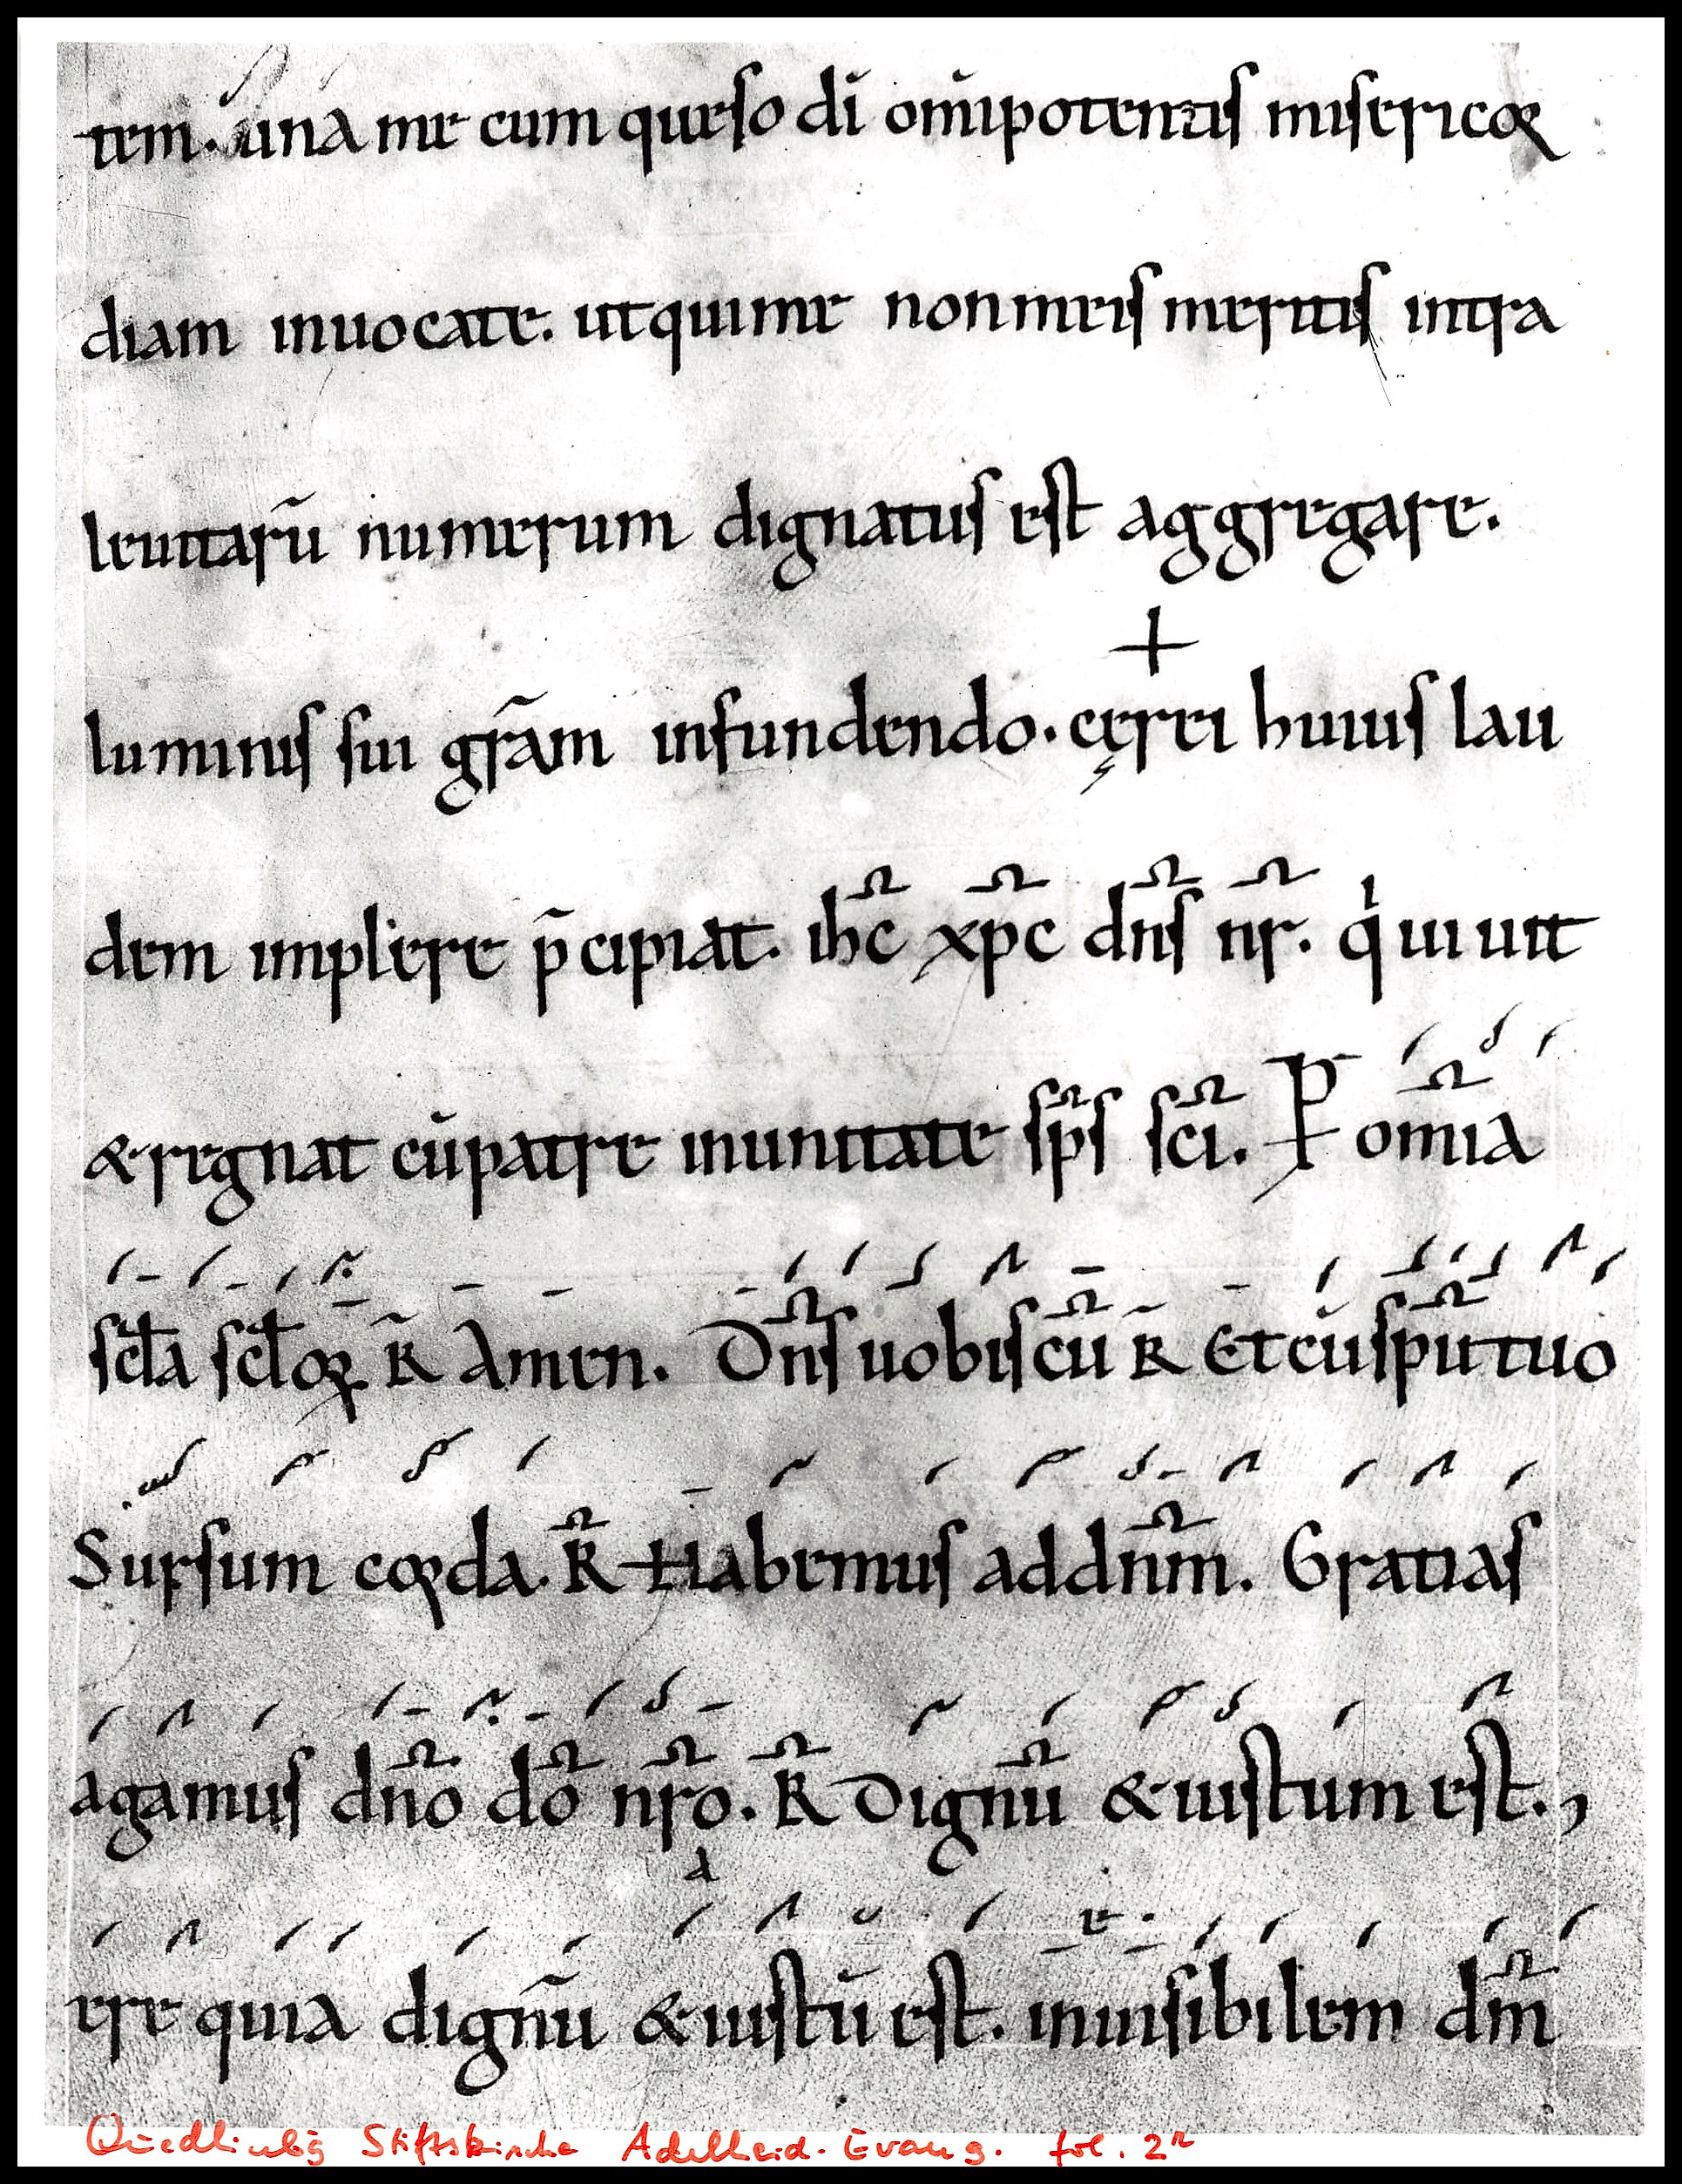 tem. una me cum queso dī om̄ipotentis misericor
diam inuocate. ut qui me non meis meritis intra
leuitarū numerum dignatus est aggregare.
+
luminis sui gr̄am infundendo. cęrei huius lau
dem implere p̄cipiat. ih̄c xp̄c dn̄s nr̄. qͥ uiuit
& regnat cū patre in unitate sp̄s sc̄i. P om̄ia
scł̄a scł̄oꝝ. R̄ Amen. Dn̄s uobiscū R̄ Et cū sp̄u tuo
Sursum corda. R̄ Habemus ad dn̄m. Gratias
agamus dn̄o dō nr̄o. R̄ Dignū & iustum est.,
d
ere quia dignū & iustū est. inuisibilem dm̄
Quedlinbg Stiftskirche Adelheid-Evang. fol. 2r